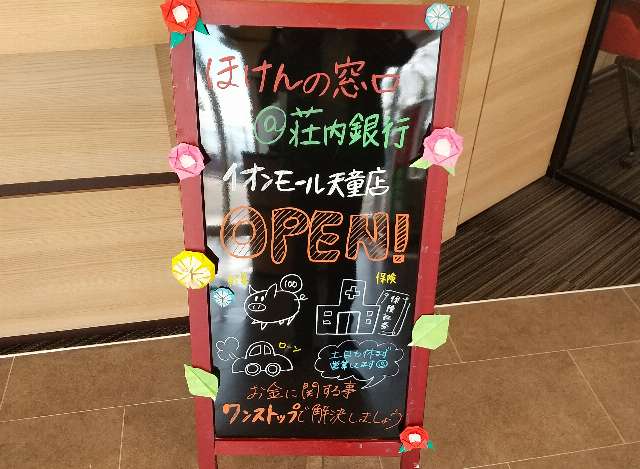 ほけんの窓口
@荘内銀行
イオンモール天童店
OPEN!
100
保険
保険証券
ローン
土日も休まず
営業してます
お金に関する事
ワンストップで解決しましょう